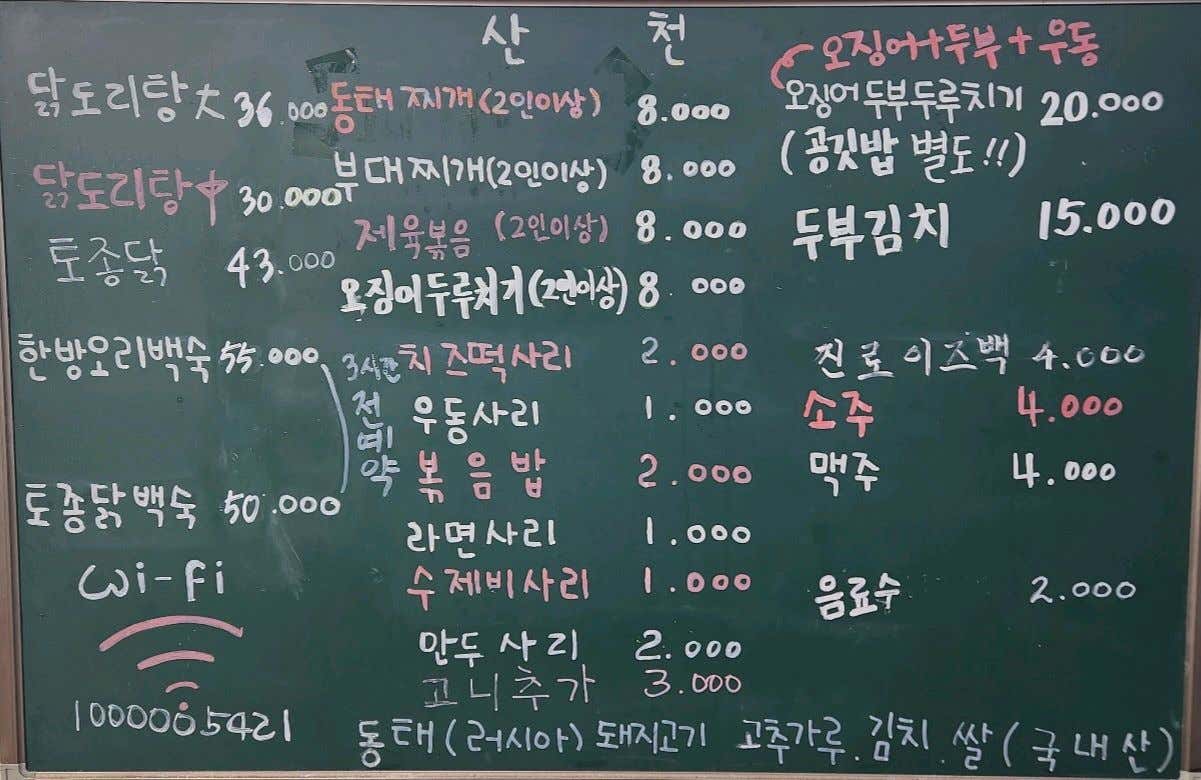 산 천
닭도리탕 大 36.000
닭도리탕 中 30.000
토종닭 43.000
한방오리백숙 55.000
토종닭백숙 50.000
3시간
전
예
약
wi-fi
1000005421
동태찌개(2인이상) 8.000
부대찌개(2인이상) 8.000
제육볶음 (2인이상) 8.000
오징어두루치기(2인이상) 8 000
치즈떡사리 2.000
우동사리 1.000
볶음밥 2.000
라면사리 1.000
수제비사리 1.000
만두사리 2.000
고니추가 3.000
오징어+두부+우동
오징어두부두루치기 20.000
(공깃밥 별도!!)
두부김치 15.000
진로이즈백 4.000
소주 4.000
맥주 4.000
음료수 2.000
동태(러시아) 돼지고기 고추가루.김치.쌀(국내산)